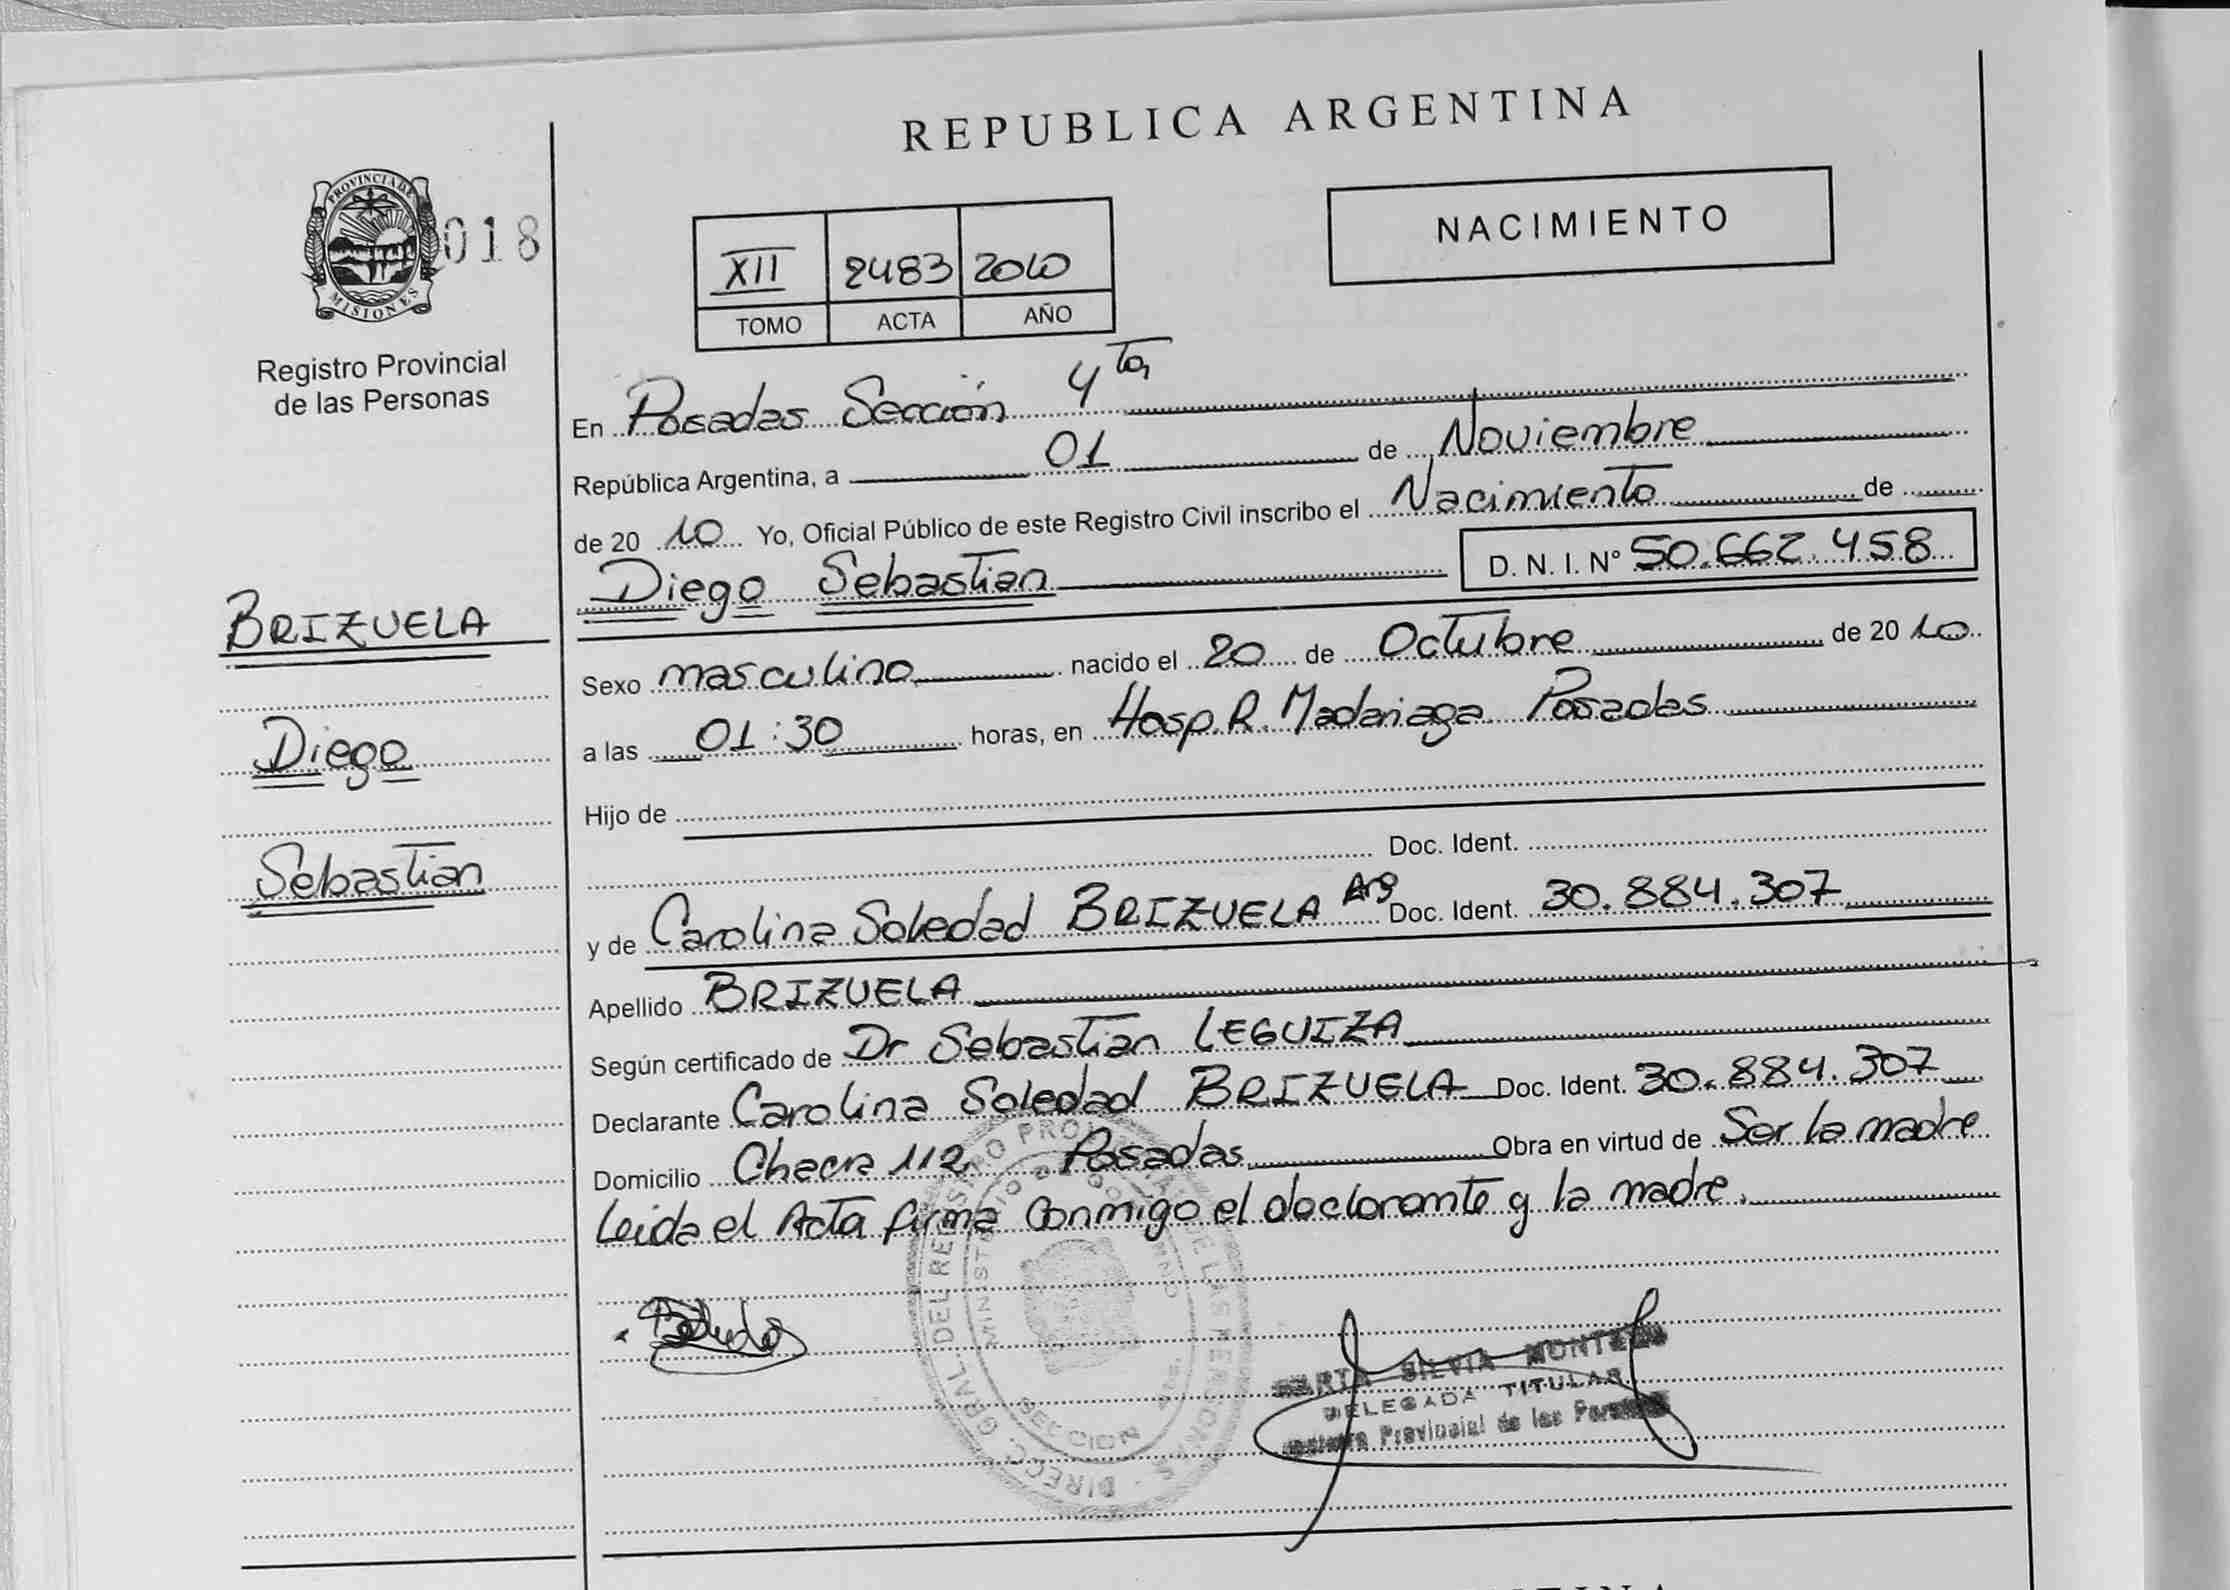 REPUBLICA ARGENTINA
PROVINCIA DE
MISIONES
018
Registro Provincial
de las Personas
XII 2483 2010
TOMO ACTA AÑO
NACIMIENTO
En Posadas Sección 4ta
República Argentina, a 01 de Noviembre
de 20 10 Yo, Oficial Público de este Registro Civil inscribo el Nacimiento de
Diego Sebastian D. N. I. Nº 50.662.458
BRIZUELA
Diego
Sebastian
Sexo masculino nacido el 20 de Octubre de 20 10
a las 01:30 horas, en Hosp. R. Madariaga Posadas
Hijo de
Doc. Ident.
y de Carolina Soledad BRIZUELA Arg Doc. Ident. 30.884.307
Apellido BRIZUELA
Según certificado de Dr Sebastian LEGUIZA
Declarante Carolina Soledad BRIZUELA Doc. Ident. 30.884.307
Domicilio Chacra 112 Posadas Obra en virtud de Ser la madre
Leida el Acta firma Conmigo el declarante y la madre.
DIRECC. GRAL. DEL REGISTRO PROVINCIAL DE LAS PERSONAS
MINISTERIO DE GOBIERNO
SECCION
SILVIA
DELEGADA TITULAR
Provincial de las